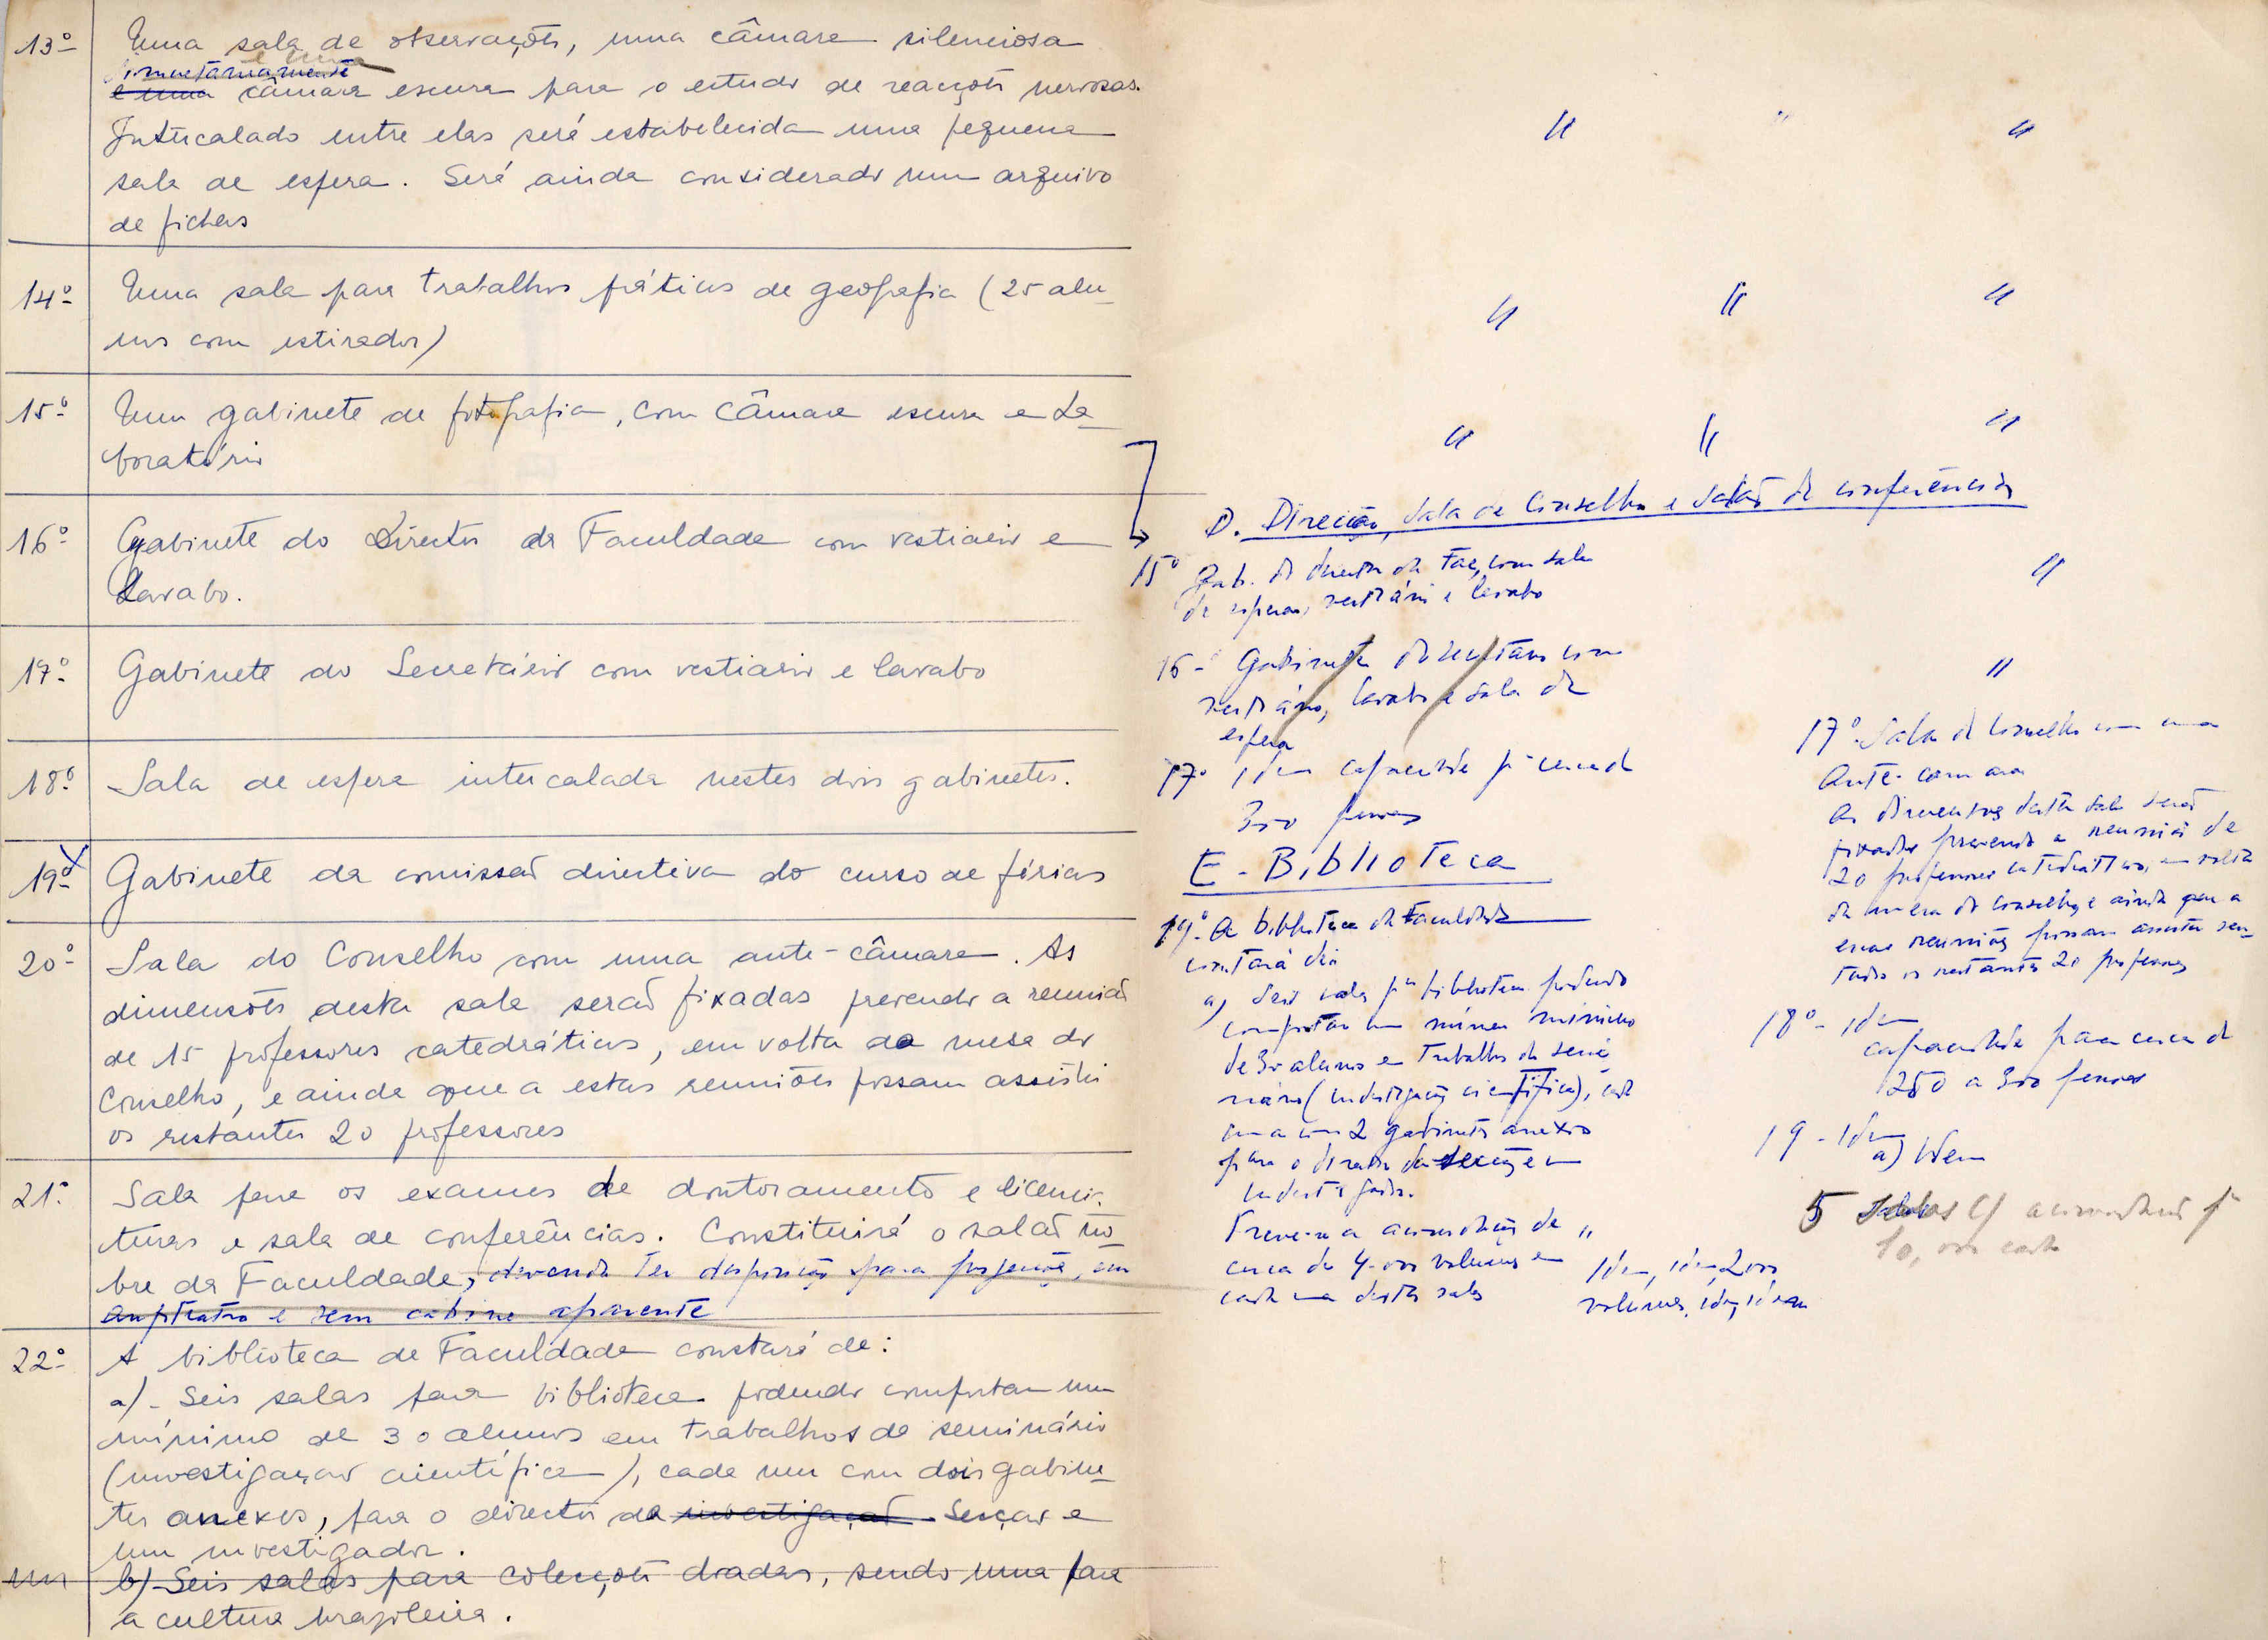 13º Uma sala de observações, uma câmara silenciosa
e uma
e uma câmara escura para o estudo de reacções nervosas.
Intercalado entre elas será estabelecida uma pequena
sala de espera. Será ainda considerado um arquivo
de fichas
14º Uma sala para trabalhos práticos de geografia (25 alu-
nos com estirador)
15º Um gabinete de fotografia, com câmara escura e La-
boratório
16º Gabinete do Director da Faculdade com vestiário e
Lavabo.
17º Gabinete do Secretário com vestiário e lavabo
18º Sala de espera intercalada nestes dois gabinetes.
19º Gabinete da comissão directiva do curso de férias
20º Sala do Conselho com uma ante-câmara. As
dimensões desta sala serão fixadas prevendo a reunião
de 15 professores catedráticos, em volta da mesa do
Conselho, e ainda que a estas reuniões possam assistir
os restantes 20 professores
21º Sala para os exames de doutoramento e licencia-
turas e sala de conferências. Constituirá o salão no-
bre da Faculdade, devendo ter disposição para projecção, em
anfiteatro e sem cabine aparente
22º A biblioteca de Faculdade constará de:
a) - Seis salas para biblioteca podendo comportar um
mínimo de 30 alunos em trabalhos de seminário
(investigação científica), cada um com dois gabine-
tes anexos, para o director da investigação Secção e
um investigador.
b) - Seis salas para colecções doadas, sendo uma para
a cultura brasileira.
" " "
" " "
" " "
D. Direcção, Sala de Conselho e Salão de conferências
15º Gab. do director da Fac, com sala
de espera, vestiário e lavabo
"
16º Gabinete do secretário com
vestiário, lavabo e sala de
espera
"
17º idem capacidade pª cerca de
300 pessoas
E - Biblioteca
19º - A biblioteca da Faculdade
constará de:
a) Seis salas pª biblioteca podendo
comportar um número mínimo
de 30 alunos em trabalhos de semi-
nário (investigação científica), cada
uma com 2 gabinetes anexos
para o director da secção e um
investigador.
Preve-se a acomodação de "
cerca de 4.000 volumes em
cada uma destas salas
Idem, idem, 2000
volumes, idem, idem
17º - Sala do Conselho com uma
Ante-camara
As dimensões desta sala serão
fixadas prevendo a reunião de
20 professores catedráticos, em volta
da mesa do conselho, e ainda que a
essas reuniões possam assistir sen-
tados os restantes 20 professores
18º - idem
capacidade para cerca de
250 a 300 pessoas
19 - idem
a) Idem
5 salas c/ acomodação pª
10,000 cada